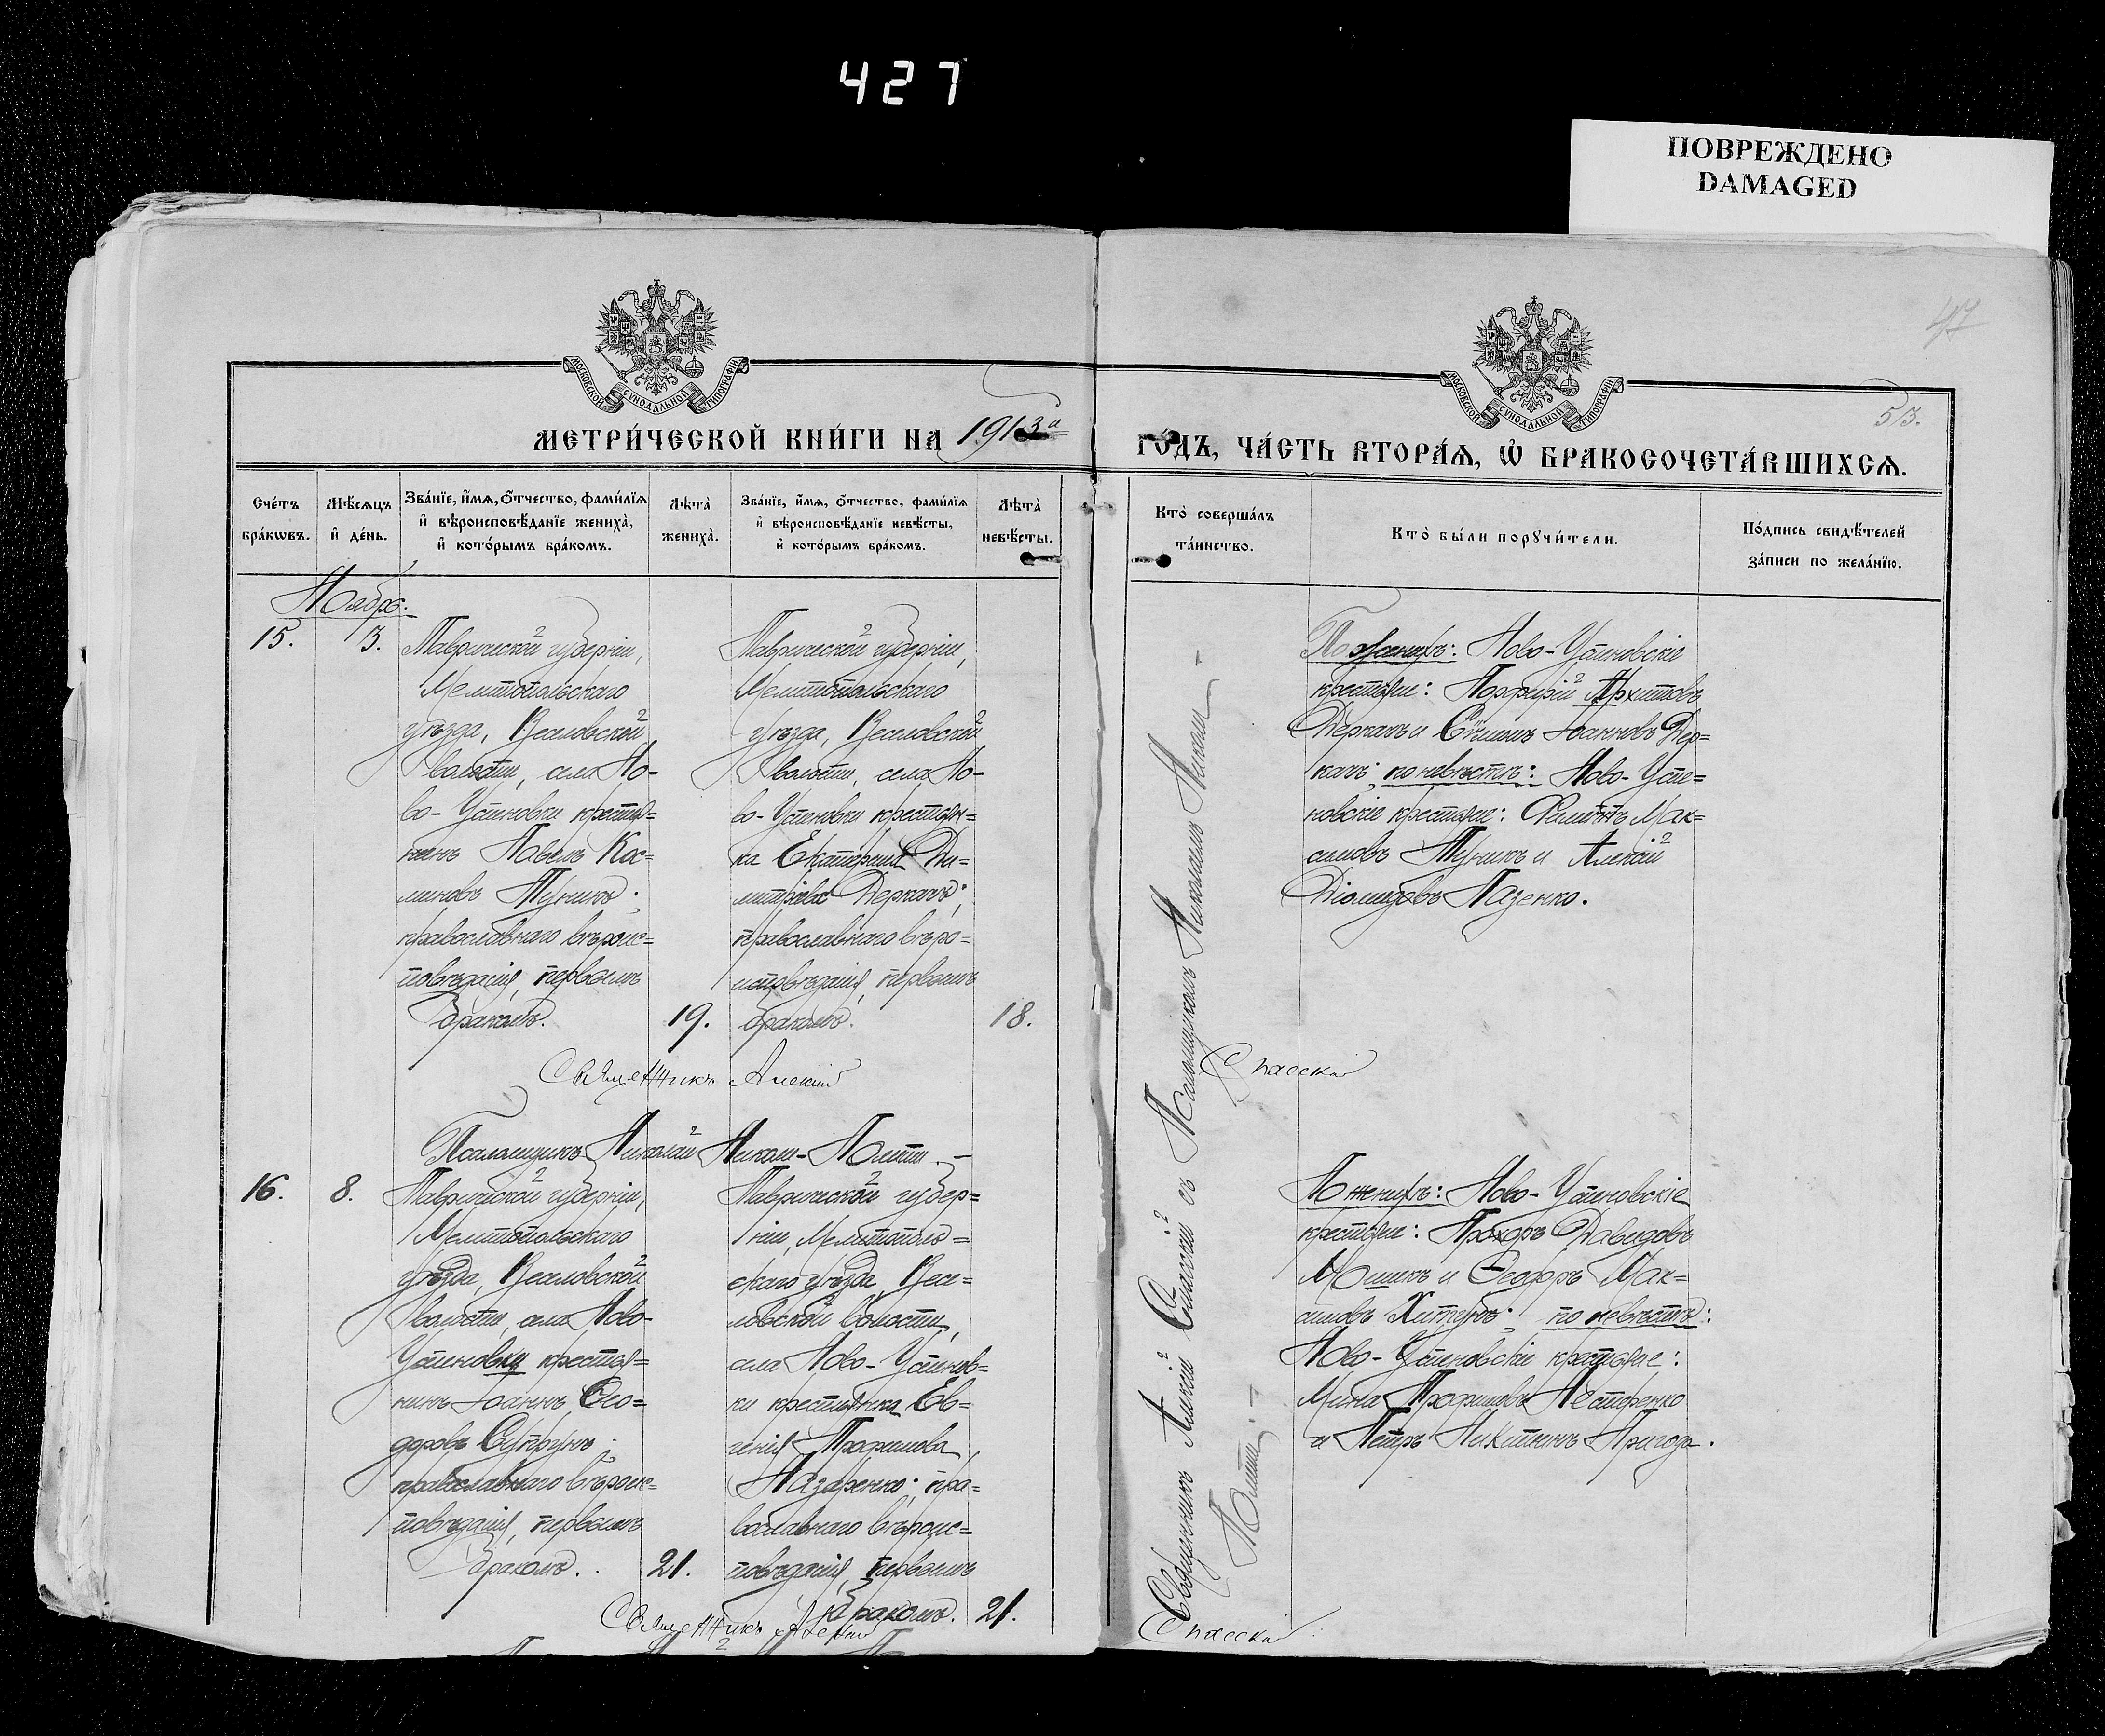 427
ПОВРЕЖДЕНО
DAMAGED
47
53.
МОСКОВСКОЙ СУНОДАЛЬНОЙ ТИПОГРАФІИ
МОСКОВСКОЙ СУНОДАЛЬНОЙ ТИПОГРАФІИ
МЕТРИ́ЧЕСКОЙ КНИ́ГИ НА 1913й
ГО́ДЪ, ЧА́СТЬ ВТОРА́Я, Ѡ БРАКОСОЧЕТА́ВШИХСЯ.
Сче́тъ
бра́кѡвъ.
Мѣ́сяцъ
и҆ де́нь.
Зва́нїе, и҆́мя, ѻ҆́тчество, фами́лїя
и҆ вѣроисповѣ́данїе жениха̀,
и҆ кото́рымъ бра́комъ.
Лѣ́та̀
жениха̀.
Зва́нїе, и҆́мя, ѻ҆́тчество, фами́лїя
и҆ вѣроисповѣ́данїе невѣ́сты,
и҆ кото́рымъ бра́комъ.
Лѣ́та̀
невѣ́сты.
Кто̀ соверша́лъ
та́инство.
Кто̀ бы́ли порꙋчи́тели.
По́дпись свидѣ́телей
за́писи по жела́нїю.
Ноябрь.
15.
3.
Таврической губерніи,
Мелитопольскаго
уѣзда, Веселовской
волости, села Но-
во-Успеновки крестья=
нинъ Павелъ Кос=
миновъ Туникъ;
православнаго вѣроис=
повѣданія, первымъ
бракомъ.
19.
Таврической губерніи,
Мелитопольскаго
уѣзда, Веселовской
волости, села Но-
во-Успеновки крестьян=
ка Екатерина Ди=
митріева Деркачъ;
православнаго вѣро=
исповѣданія, первымъ
бракомъ.
18.
По женихѣ: Ново-Успеновскіе
крестьяне: Порфирій Архиповъ
Деркачъ и Стефанъ Іоанновъ Дер=
качъ; по невѣстѣ: Ново-Успе=
новскіе крестьяне: Филиппъ Мак=
симовъ Туникъ и Алексій
Діомидовъ Пазенко.
Священникъ Алексій
Спасскій
Псаломщикъ Николай
16.
8.
Таврической губерніи,
Мелитопольскаго
уѣзда, Веселовской
волости, села Ново-
Успеновки крестья=
нинъ Іоаннъ Ѳео=
доровъ Супрунъ;
православнаго вѣроис=
повѣданія, первымъ
бракомъ.
21.
Таврической губер=
ніи, Мелитополь=
скаго уѣзда, Весе=
ловской волости,
села Ново-Успенов=
ки крестьянка Ев=
генія Трофимова
Назаренко; пра=
вославнаго вѣроис=
повѣданія, первымъ
бракомъ.
21.
По женихѣ: Ново-Успеновскіе
крестьяне: Прохоръ Давидовъ
и Ѳеодоръ Мак=
симовъ Хитунъ; по невѣстѣ:
Ново-Успеновскіе крестьяне:
Мина Трофимовъ Нестеренко
и Петръ Никитинъ Пригода.
Священникъ Алексій
Спасскій
Священникъ Алексій Спасскій съ Псаломщикомъ Николаемъ